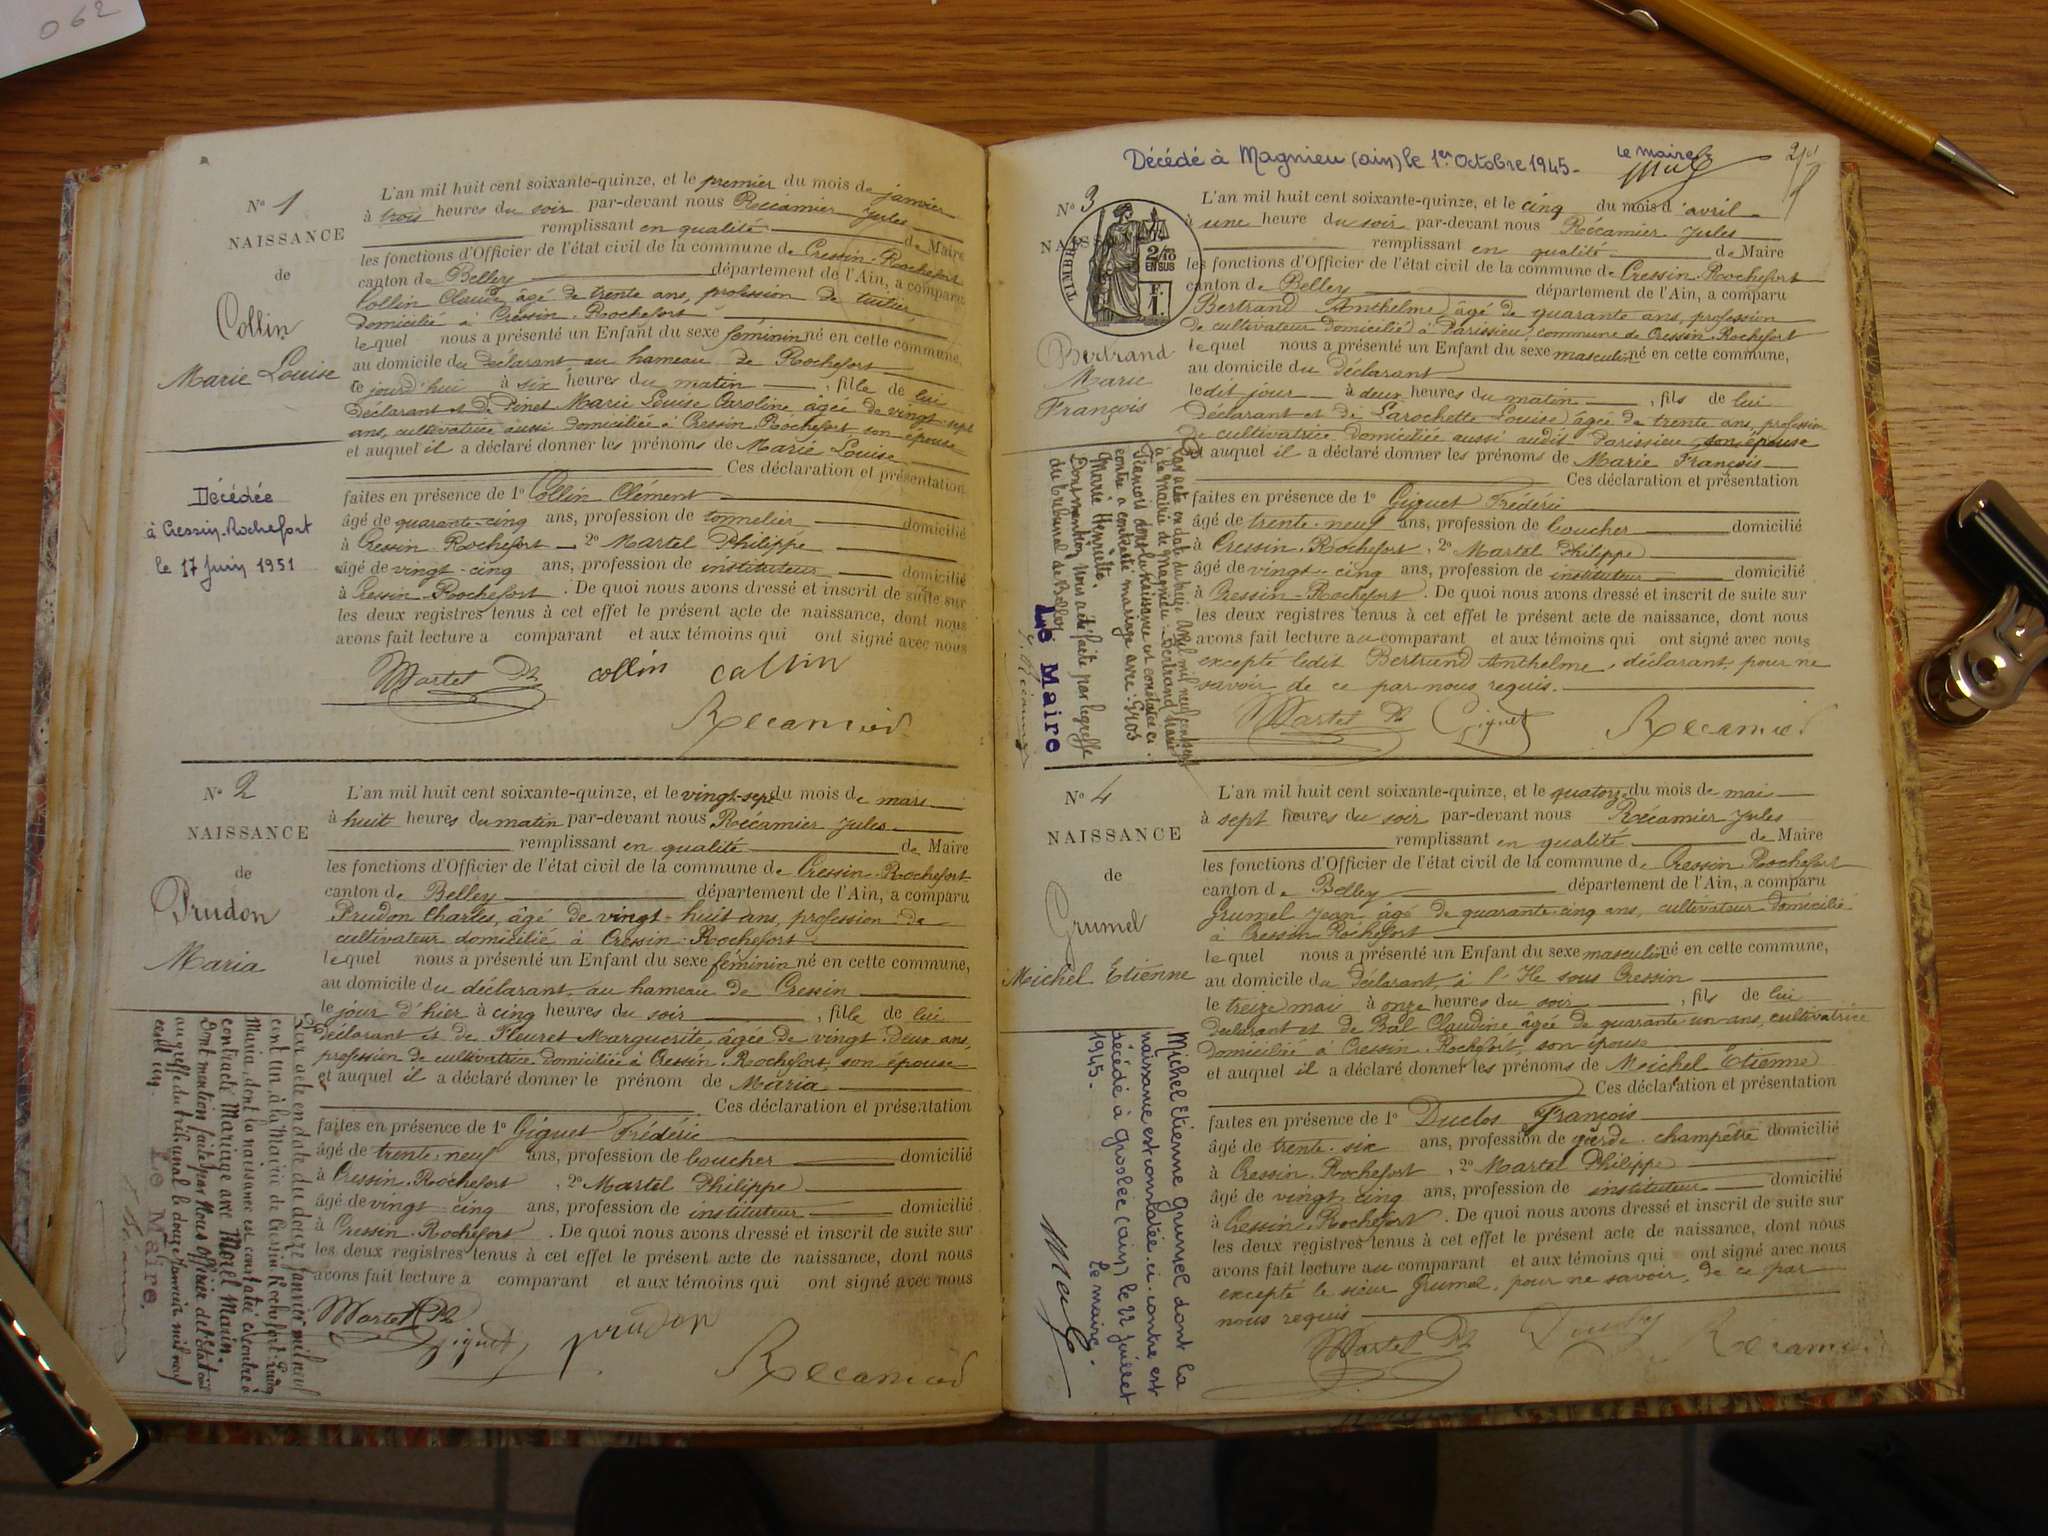 062
N° 1
NAISSANCE
de
Collin
Marie Louise
Décédée
à Cressin-Rochefort
le 17 Juin 1951
L'an mil huit cent soixante-quinze, et le premier du mois de janvier
à trois heures du soir par-devant nous Récamier Jules
remplissant en qualité de Maire
les fonctions d'Officier de l'état civil de la commune de Cressin-Rochefort
canton de Belley département de l'Ain, a comparu
Collin Claude, âgé de trente ans, profession de tuilier,
domicilié à Cressin-Rochefort
lequel nous a présenté un Enfant du sexe féminin né en cette commune,
au domicile du déclarant au hameau de Rochefort
ce jourd'hui à six heures du matin, fille de lui
déclarant et de Pinet Marie Louise Caroline, âgée de vingt-sept
ans, cultivatrice aussi domiciliée à Cressin Rochefort son épouse
et auquel il a déclaré donner les prénoms de Marie Louise
Ces déclaration et présentation
faites en présence de 1° Collin Clément
âgé de quarante-cinq ans, profession de tonnelier domicilié
à Cressin-Rochefort 2° Martel Philippe
âgé de vingt-cinq ans, profession de instituteur domicilié
à Cressin-Rochefort. De quoi nous avons dressé et inscrit de suite sur
les deux registres tenus à cet effet le présent acte de naissance, dont nous
avons fait lecture a comparant et aux témoins qui ont signé avec nous
Martel Ph collin collin
Récamier
N° 2
NAISSANCE
de
Prudon
Maria
Par acte en date du douze Janvier mil neuf
cent un, à la Mairie de Cressin Rochefort, Prudon
Maria, dont la naissance est constatée ci-contre à
contracté Mariage avec Morel Marin.
Dont mention faite par Nous officier de l'Etat civil
au greffe du tribunal le douze Janvier mil neuf
cent cinq.
Le Maire.
L'an mil huit cent soixante-quinze, et le vingt-sept du mois de mars
à huit heures du matin par-devant nous Récamier Jules
remplissant en qualité de Maire
les fonctions d'Officier de l'état civil de la commune de Cressin-Rochefort
canton de Belley département de l'Ain, a comparu
Prudon Charles, âgé de vingt-huit ans, profession de
cultivateur domicilié à Cressin-Rochefort
lequel nous a présenté un Enfant du sexe féminin né en cette commune,
au domicile du déclarant au hameau de Cressin
le jour d'hier à cinq heures du soir, fille de lui
déclarant et de Fleuret Marguerite âgée de vingt-deux ans,
profession de cultivatrice domiciliée à Cressin-Rochefort, son épouse
et auquel il a déclaré donner le prénom de Maria
Ces déclaration et présentation
faites en présence de 1° Giguet Frédéric
âgé de trente-neuf ans, profession de boucher domicilié
à Cressin-Rochefort, 2° Martel Philippe
âgé de vingt-cinq ans, profession de instituteur domicilié
à Cressin-Rochefort. De quoi nous avons dressé et inscrit de suite sur
les deux registres tenus à cet effet le présent acte de naissance, dont nous
avons fait lecture a comparant et aux témoins qui ont signé avec nous
Martel Ph
Giguet prudon
Récamier
Décédé à Magnieu (ain) le 1er Octobre 1945.
Le maire
N° 3
NAISS
TIMBRE
2/10
EN SUS
F.
1.
Bertrand
Marie
François
Par acte en date du treize Avril mil neuf cent sept
à la Mairie de Magnieu, Bertrand Marie
François dont la naissance est constatée ci-
contre a contracté mariage avec Gros
Marie Henriette.
Dont mention Nous a été faite par le greffe
du tribunal de Belley
Le Maire
L'an mil huit cent soixante-quinze, et le cinq du mois d'avril
à une heure du soir par-devant nous Récamier Jules
remplissant en qualité de Maire
les fonctions d'Officier de l'état civil de la commune de Cressin-Rochefort
canton de Belley département de l'Ain, a comparu
Bertrand Anthelme âgé de quarante ans, profession
de cultivateur domicilié à Parissieu, commune de Cressin-Rochefort
lequel nous a présenté un Enfant du sexe masculin né en cette commune,
au domicile du déclarant
ledit jour à deux heures du matin, fils de lui
déclarant et de Larochette Louise âgée de trente ans, profession
de cultivatrice domiciliée aussi audit Parissieu son épouse
et auquel il a déclaré donner les prénoms de Marie François
Ces déclaration et présentation
faites en présence de 1° Giguet Frédéric
âgé de trente-neuf ans, profession de boucher domicilié
à Cressin-Rochefort, 2° Martel Philippe
âgé de vingt-cinq ans, profession de instituteur domicilié
à Cressin-Rochefort. De quoi nous avons dressé et inscrit de suite sur
les deux registres tenus à cet effet le présent acte de naissance, dont nous
avons fait lecture au comparant et aux témoins qui ont signé avec nous
excepté ledit Bertrand Anthelme, déclarant, pour ne
savoir de ce par nous requis.
Martel Ph Giguet Récamier
N° 4
NAISSANCE
de
Grumel
Michel Etienne
Michel Etienne Grumel dont la
naissance est constatée ci-contre est
décédé à Groslée (ain) le 22 juillet
1945.
Le maire.
L'an mil huit cent soixante-quinze, et le quatorze du mois de mai
à sept heures du soir par-devant nous Récamier Jules
remplissant en qualité de Maire
les fonctions d'Officier de l'état civil de la commune de Cressin-Rochefort
canton de Belley département de l'Ain, a comparu
Grumel Jean âgé de quarante-cinq ans, cultivateur domicilié
à Cressin-Rochefort
lequel nous a présenté un Enfant du sexe masculin né en cette commune,
au domicile du déclarant, à l'Ile sous Cressin
le treize mai à onze heures du soir, fils de lui
déclarant et de Bal Claudine âgée de quarante-un ans, cultivatrice
domiciliée à Cressin-Rochefort, son épouse
et auquel il a déclaré donner les prénoms de Michel Etienne
Ces déclaration et présentation
faites en présence de 1° Duclos François
âgé de trente-six ans, profession de garde-champêtre domicilié
à Cressin-Rochefort, 2° Martel Philippe
âgé de vingt-cinq ans, profession de instituteur domicilié
à Cressin-Rochefort. De quoi nous avons dressé et inscrit de suite sur
les deux registres tenus à cet effet le présent acte de naissance, dont nous
avons fait lecture au comparant et aux témoins qui ont signé avec nous
excepté le sieur Grumel, pour ne savoir, de ce par
nous requis
Martel Ph Récamier